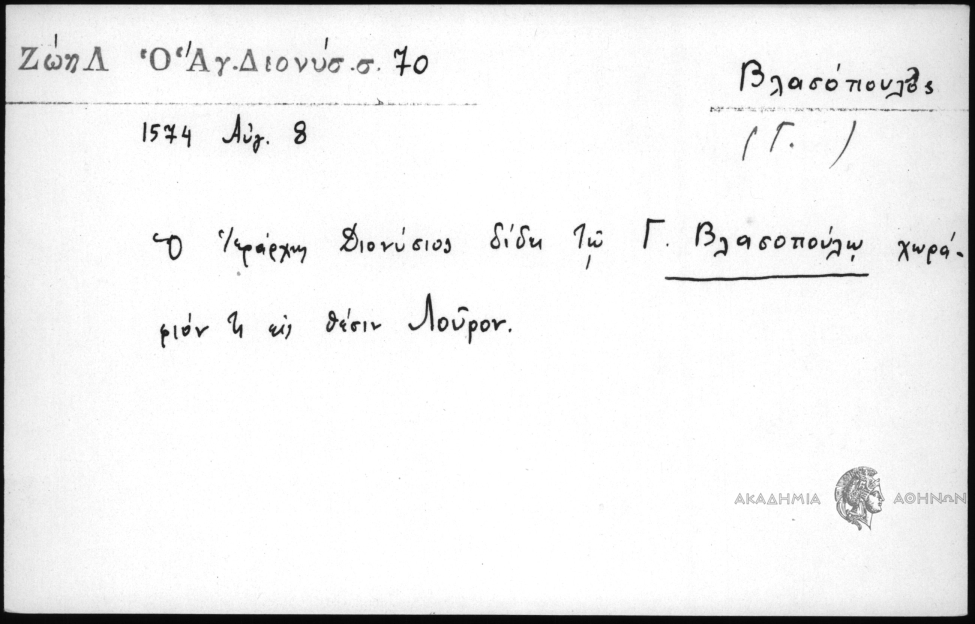 Ζώη Λ Ὁ Ἅγ. Διονύσ. σ. 70
Βλασόπουλος
(Γ. )
1574 Αὐγ. 8
Ὁ Ἱεράρχης Διονύσιος δίδει τῷ Γ. Βλασοπούλῳ χωρά-
φιόν τι εἰς θέσιν Λοῦρον.
ΑΚΑΔΗΜΙΑ ΑΘΗΝΩΝ